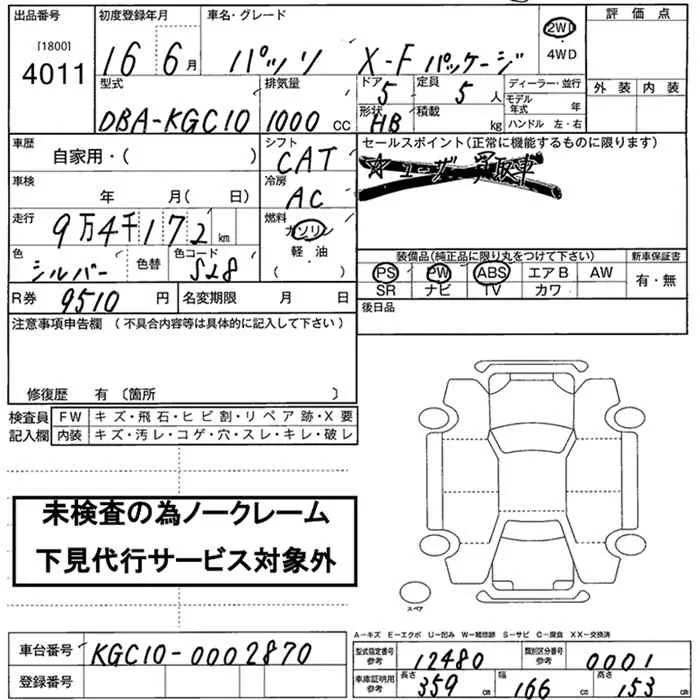 出品番号 初度登録年月 車名・グレード 2WD 評価点
[1800] 4011 16 6月 パッソ X-Fパッケージ 4WD
型式 排気量 ドア 定員 ディーラー・並行 外装 内装
DBA-KGC10 1000 CC 5 5人 モデル年式 年
形状 HB 積載 kg ハンドル 左・右
車歴 シフト セールスポイント(正常に機能するものに限ります)
自家用・( ) CAT ☆ユーザー買取車
車検 冷房
年 月( 日) AC
走行 燃料
9万4千172km ガソリン
色 色替 色コード 軽・油 装備品(純正品に限り丸をつけて下さい) 新車保証書
シルバー S28 ( ) PS PW ABS エアB AW 有・無
SR ナビ TV カワ
R券 9510円 名変期限 月 日 後日品
注意事項申告欄 (不具合内容等は具体的に記入して下さい)
修復歴 有 〔箇所 〕
検査員 FW キズ・飛石・ヒビ割・リペア跡・X要
記入欄 内装 キズ・汚レ・コゲ・穴・スレ・キレ・破レ
未検査の為ノークレーム
下見代行サービス対象外
スペア
A−キズ E−エクボ U−凹み W−補修跡 S−サビ C−腐食 XX−交換済
車台番号 KGC10-0002870 型式指定番号 参考 12480 類別区分番号 参考 0001
登録番号 車庫証明用 参考 長さ 359cm 幅 166cm 高さ 153cm